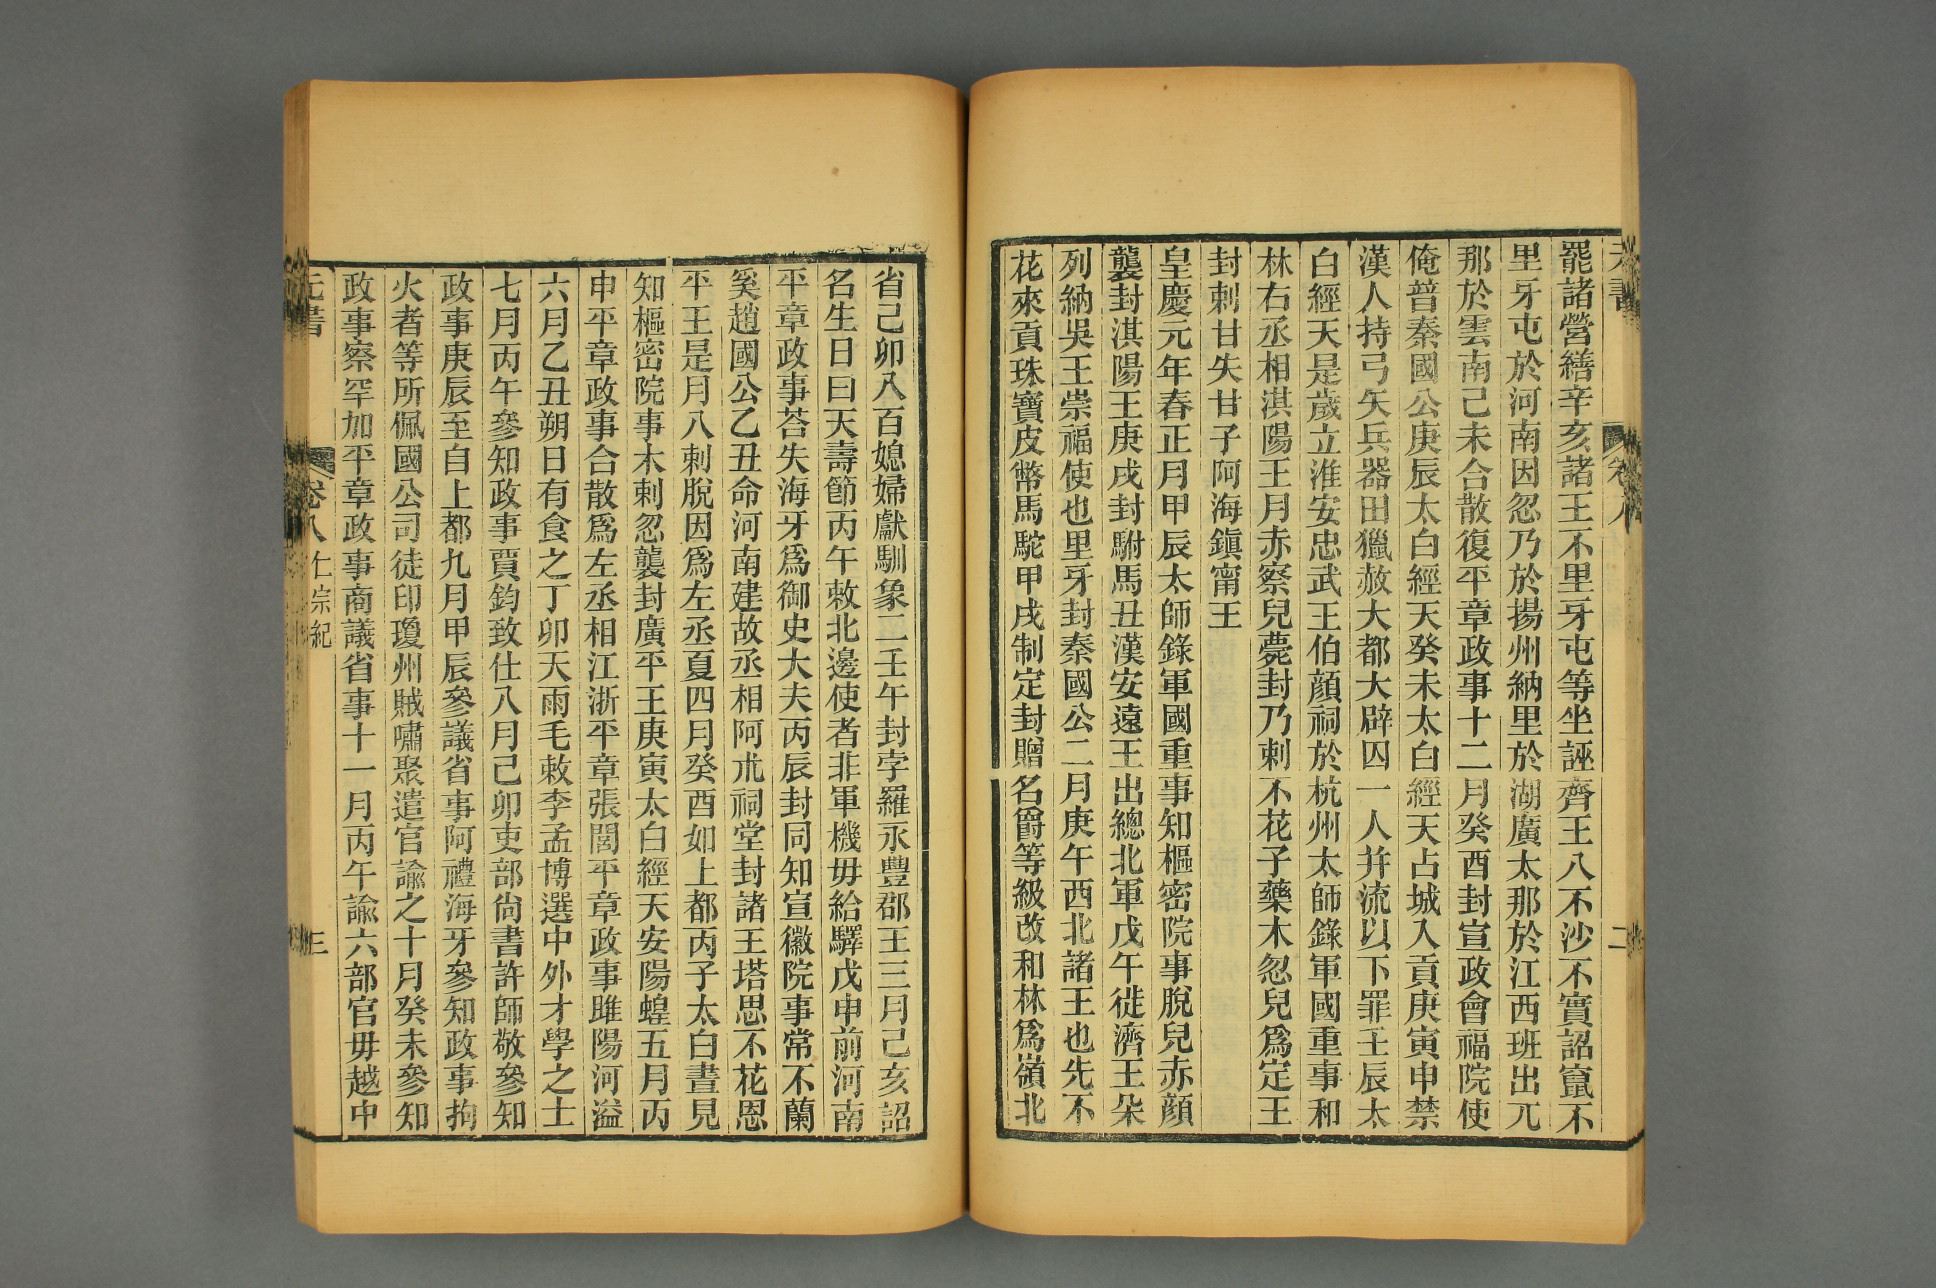 罷諸營繕辛亥諸王不里牙屯等坐誣齊王八不沙不實詔竄不
里牙屯於河南因忽乃於揚州納里於湖廣太那於江西班出兀
那於雲南己未合散復平章政事十二月癸酉封宣政會福院使
俺普秦國公庚辰太白經天癸未太白經天占城入貢庚寅申禁
漢人持弓矢兵器田獵赦大都大辟囚一人并流以下罪壬辰太
白經天是歲立淮安忠武王伯顏祠於杭州太師錄軍國重事和
林右丞相淇陽王月赤察兒薨封乃剌不花子藥木忽兒爲定王
封剌甘失甘子阿海鎮甯王
皇慶元年春正月甲辰太師錄軍國重事知樞密院事脫兒赤顏
襲封淇陽王庚戌封駙馬丑漢安遠王出總北軍戊午徙濟王朵
列納吳王崇福使也里牙封秦國公二月庚午西北諸王也先不
花來貢珠寶皮幣馬駝甲戌制定封贈名爵等級改和林爲嶺北
省己卯八百媳婦獻馴象二壬午封孛羅永豐郡王三月己亥詔
名生日曰天壽節丙午敕北邊使者非軍機毋給驛戊申前河南
平章政事荅失海牙爲御史大夫丙辰封同知宣徽院事常不蘭
奚趙國公乙丑命河南建故丞相阿朮祠堂封諸王塔思不花恩
平王是月八剌脫因爲左丞夏四月癸酉如上都丙子太白晝見
知樞密院事木剌忽襲封廣平王庚寅太白經天安陽蝗五月丙
申平章政事合散爲左丞相江浙平章張閭平章政事睢陽河溢
六月乙丑朔日有食之丁卯天雨毛敕李孟博選中外才學之士
七月丙午參知政事賈鈞致仕八月己卯吏部尙書許師敬參知
政事庚辰至自上都九月甲辰參議省事阿禮海牙參知政事拘
火者等所佩國公司徒印瓊州賊嘯聚遣官諭之十月癸未參知
政事察罕加平章政事商議省事十一月丙午諭六部官毋越中
元書 卷八 仁宗紀 三